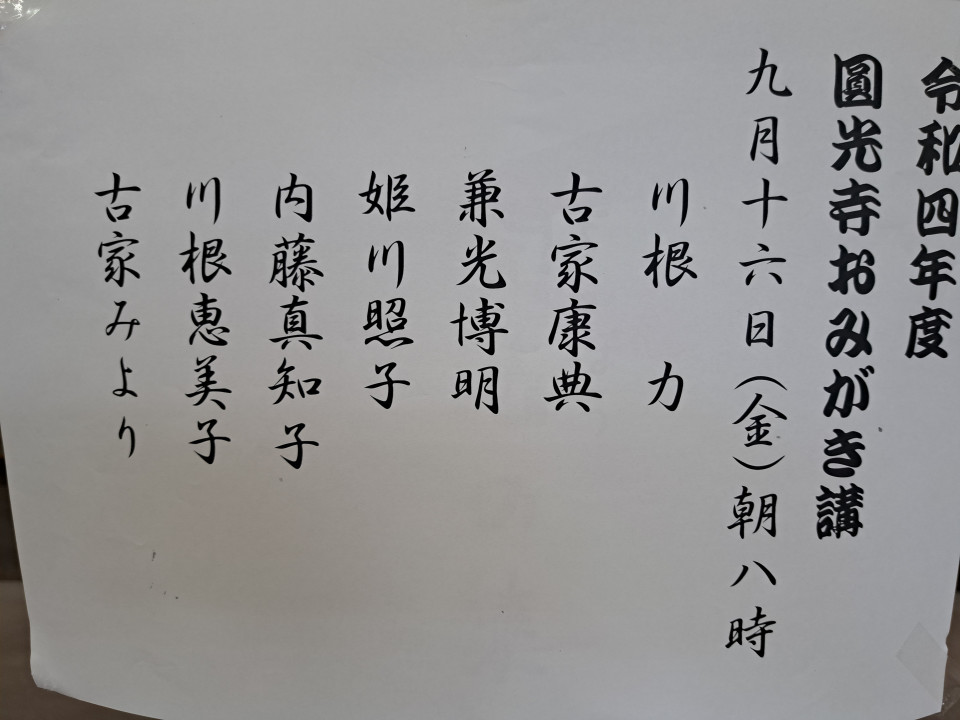 令和四年度
圓光寺おみがき講
九月十六日（金）朝八時
川根　力
古家康典
兼光博明
姫川照子
内藤真知子
川根恵美子
古家みより